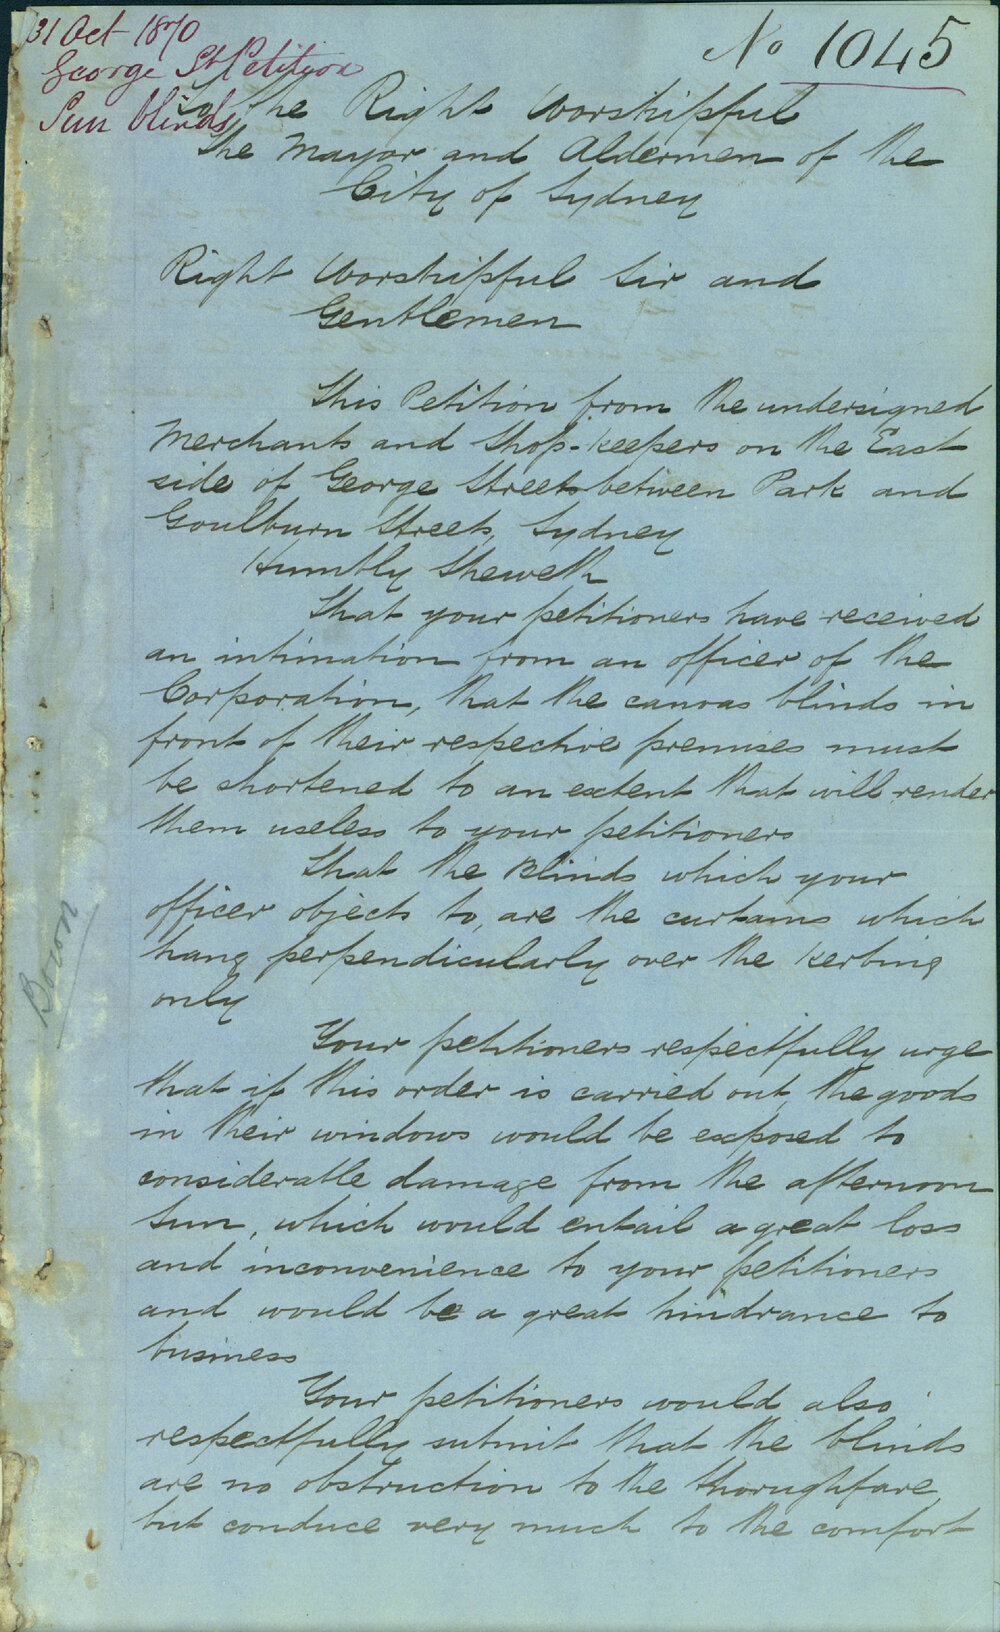 31 Oct 1870
George St Petition
Sun blinds
No 1045
To the Right Worshipful
the Mayor and Aldermen of the
City of Sydney
Right Worshipful Sir and
Gentlemen
This Petition from the undersigned
Merchants and Shop-keepers on the East
side of George Street between Park and
Goulburn Streets, Sydney
Humbly Sheweth
That your petitioners have received
an intimation from an officer of the
Corporation, that the canvas blinds in
front of their respective premises must
be shortened to an extent that will render
them useless to your petitioners
That the Blinds which your
officer objects to, are the curtains which
hang perpendicularly over the kerbing
only
Your petitioners respectfully urge
that if this order is carried out, the goods
in their windows would be exposed to
considerable damage from the afternoon
Sun, which would entail a great loss
and inconvenience to your petitioners
and would be a great hindrance to
business
Your petitioners would also
respectfully submit that the blinds
are no obstruction to the thoroughfare
but conduce very much to the comfort